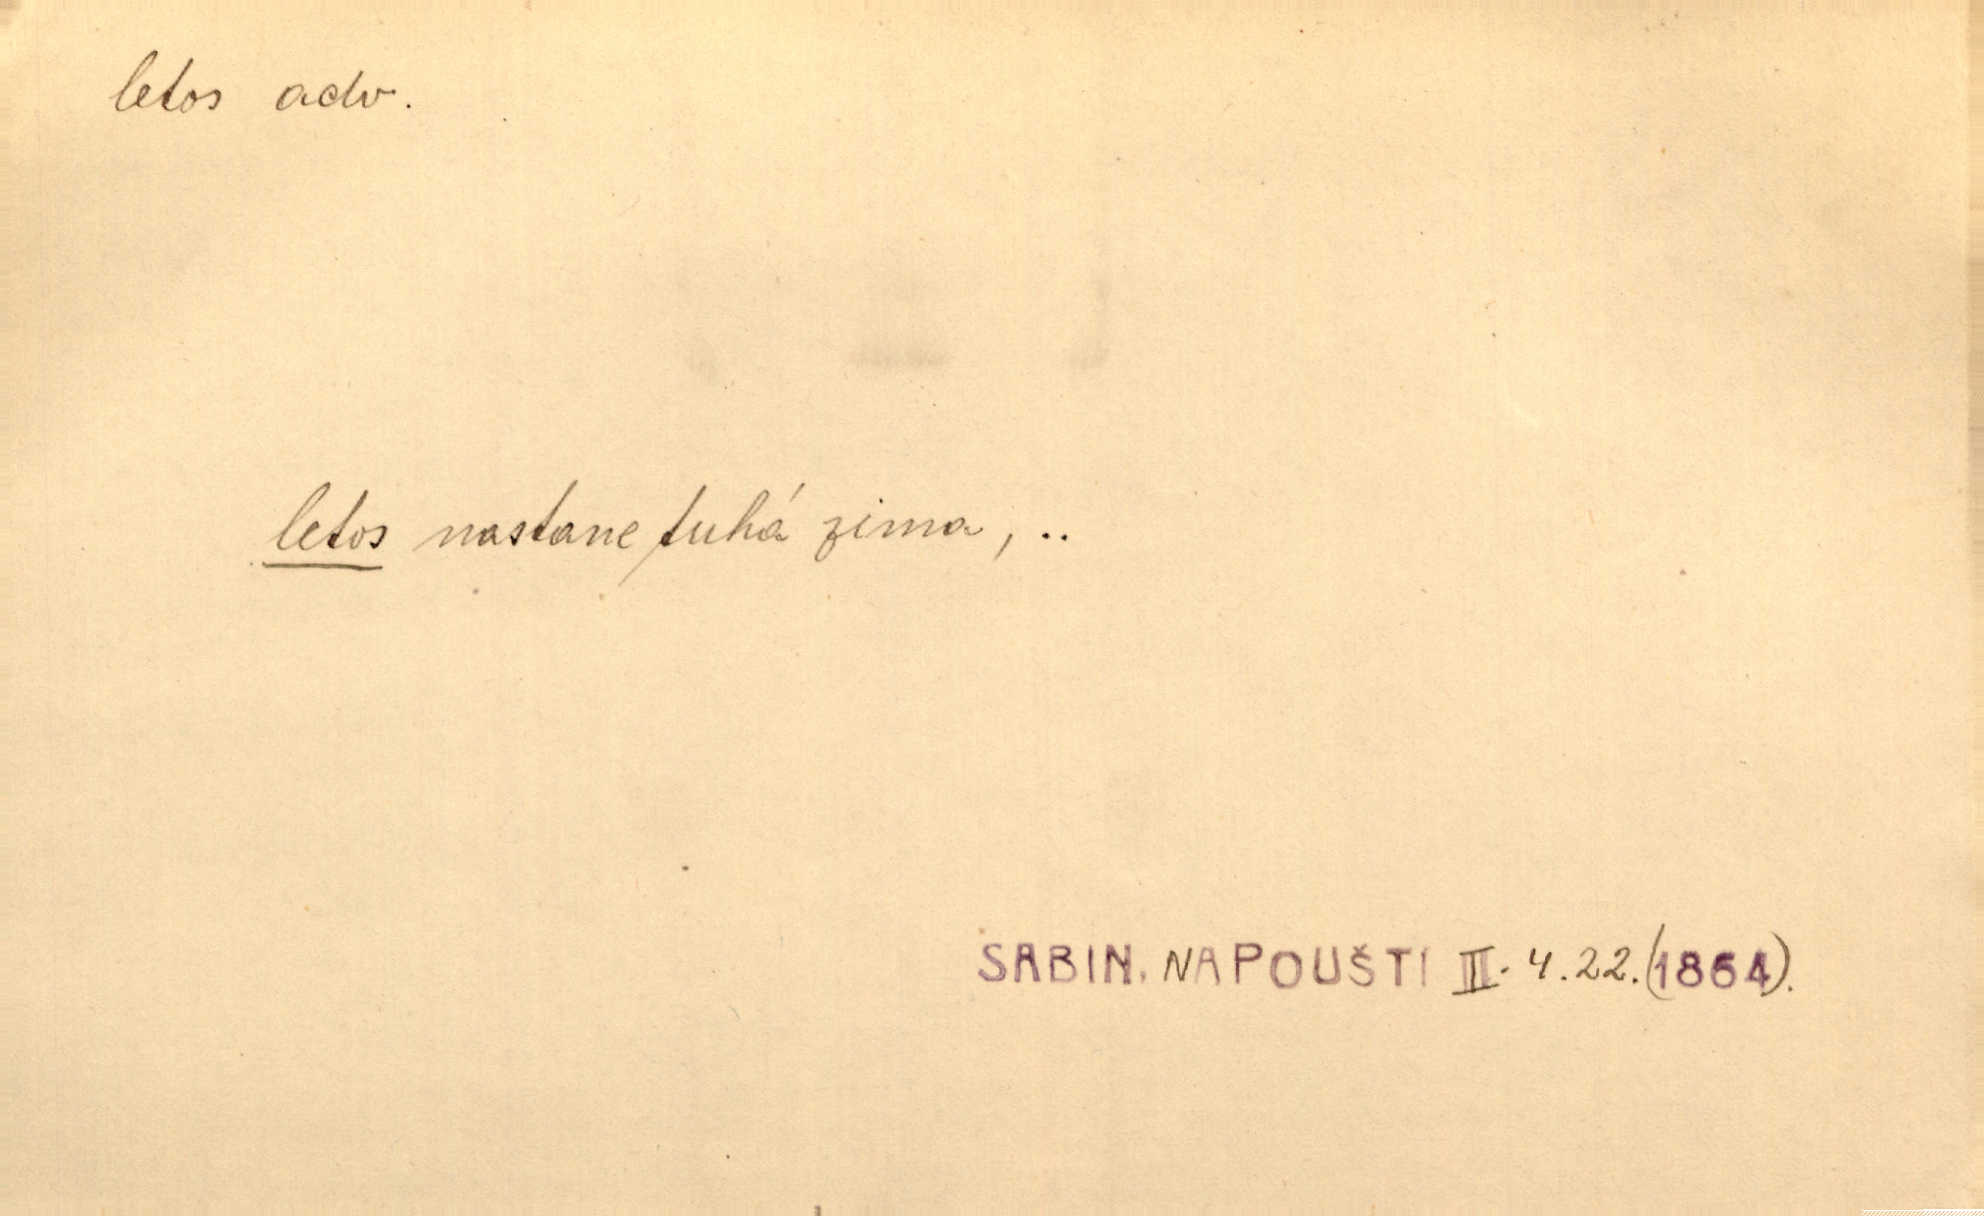 letos adv.
letos nastane tuhá zima, ..
SABIN. NA POUŠTI II. 4. 22. (1864).